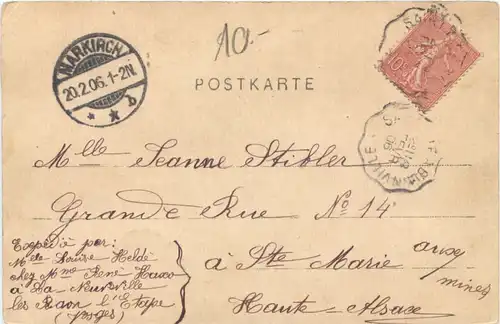 MARKIRCH
20.2.06.1-2N
b
10.-
POSTKARTE
Mlle Jeanne Stibler
Grande Rue No 14
à Ste Marie aux
mines
Haute-Alsace
Expédié par:
Mlle Louise Heldé
chez Mme René Haxo
à La Neuville
les Raon l'Etape
(Vosges)